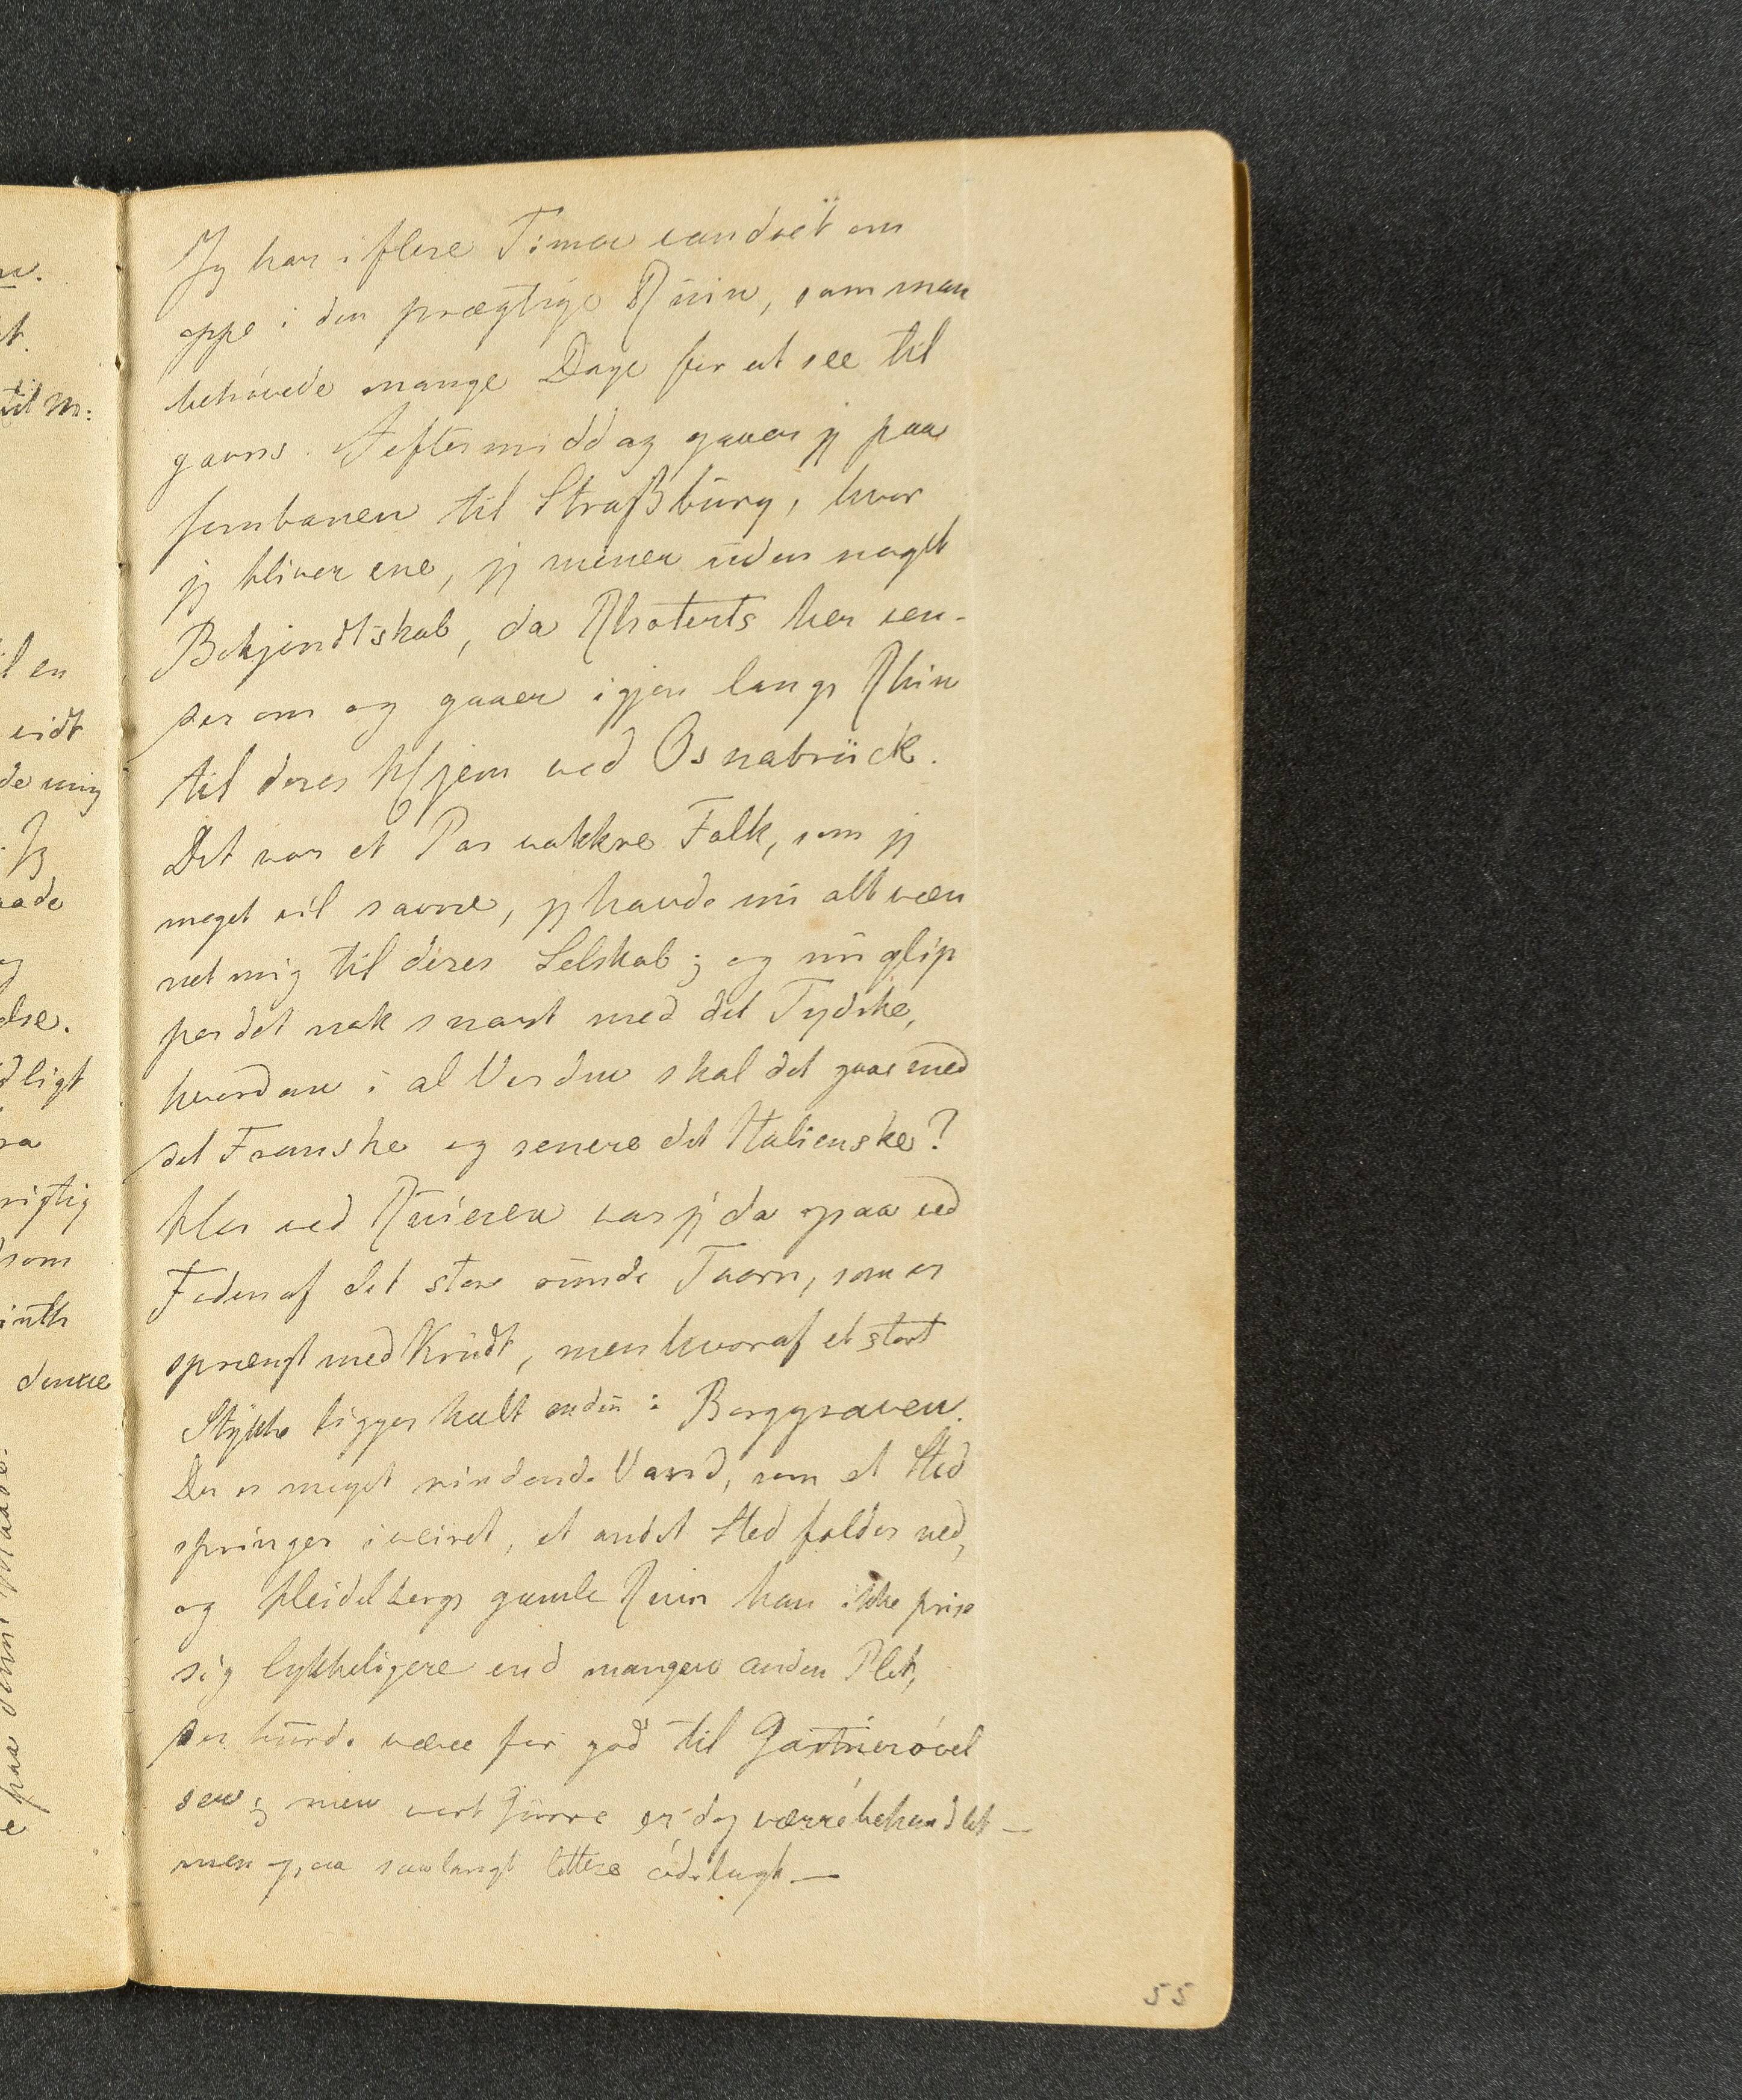 Jeg har i flere Timer vandret om
oppe i den prægtige Ruin, som man
behövede mange Dage for at see til
gavns. I eftermiddag gaaer jeg paa
Jernbanen til Straßburg, hvor
jeg bliver ene, jeg mener uden noget
Bekjendtskab, da Rhoterts her ven-
der om og gaaer igjen langs Rhin
til deres Hjem ved Osnabrück.
Det var et Par vakkre Folk, som jeg
meget vil savne, jeg havde nu alt væn
net mig til deres Selskab; og nu glip
per det nok snart med det Tydske,
hvordan i al Verden skal det gaae med
det Franske og senere det Italienske?
Her ved Ruinen var jeg da opaa ved
Foden af det store runde Taarn, som er
sprengt med Krudt, men hvoraf et stort
Stykke ligger heelt nede i Borggraven.
Der er meget rindende Vand, som et Sted
springer i veiret, et andet Sted falder ned,
og Heidelbergs gamle Ruin kan ikke prise
sig lykkeligere end mangen anden Plet,
der burde være for god til Gartnerövel
sen; men vort Furre er dog værre behandlet —
men ogsaa saalangt lettere ödelagt. —
55
ligt
som
denne